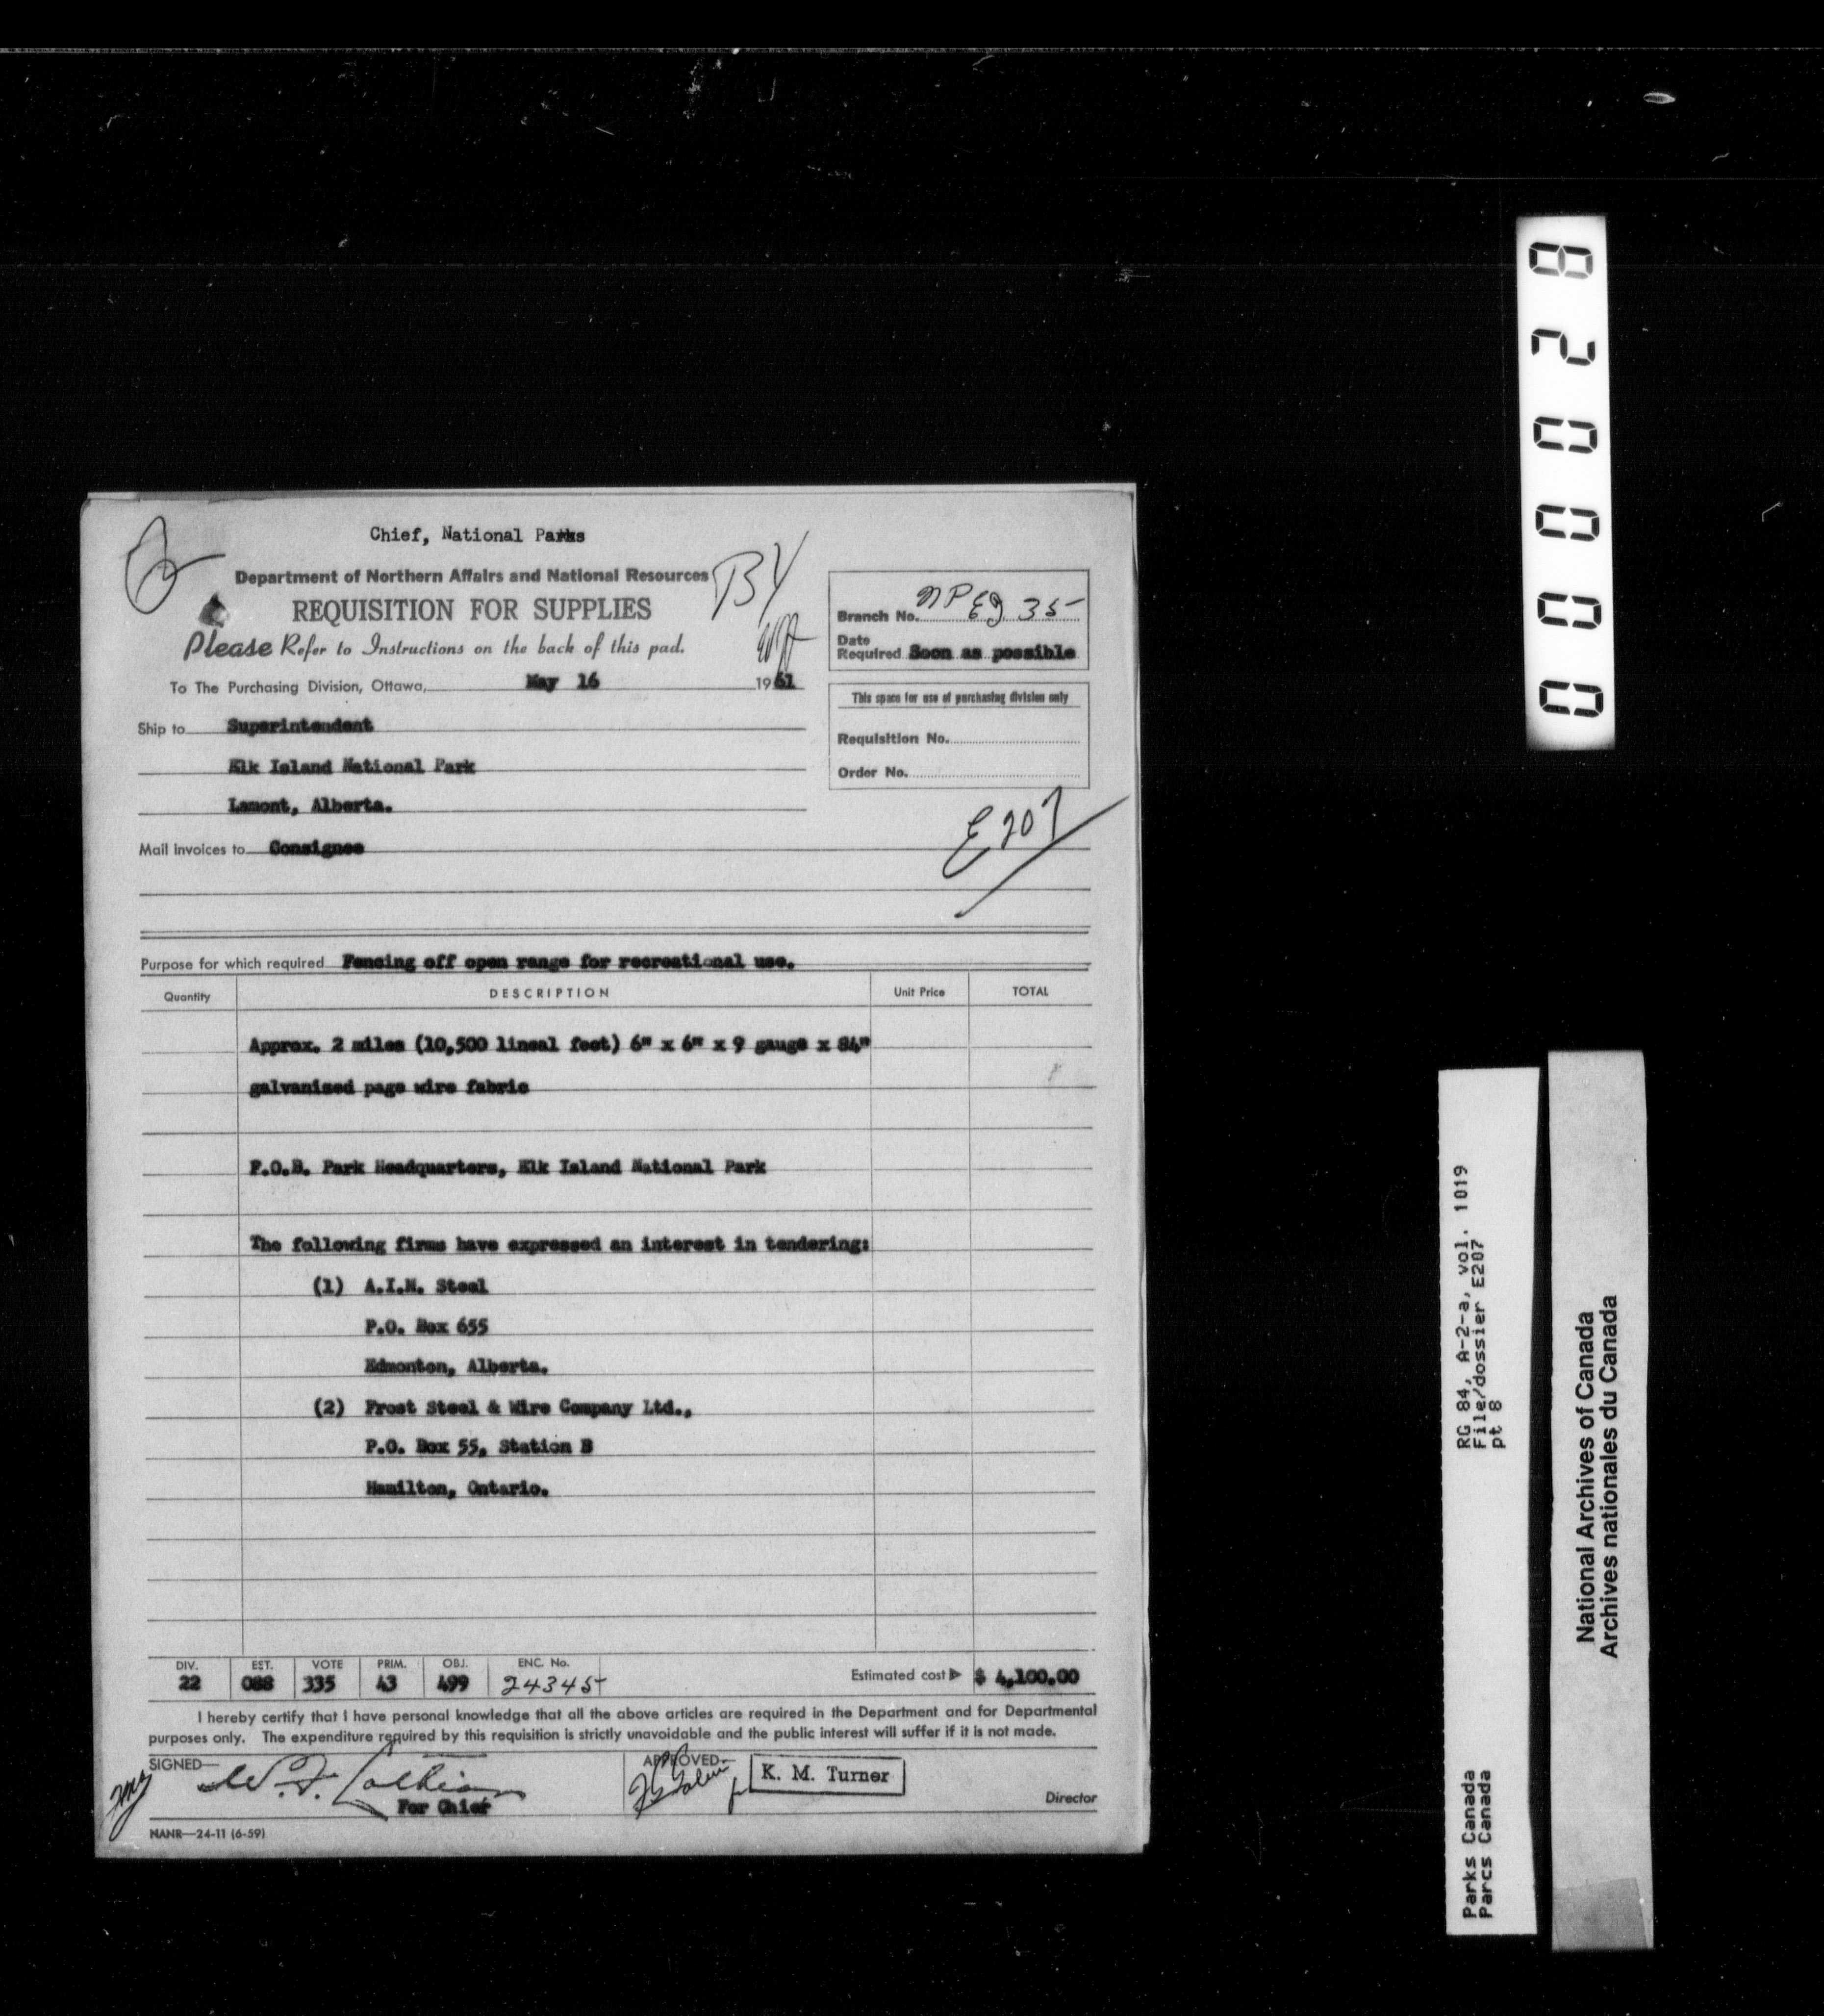 Chief, National Parks
Department of Northern Affairs and National Resources
BY
REQUISITION FOR SUPPLIES
Please Refer to Instructions on the back of this pad.
Branch No. NPEg 35
Date
Required Soon as possible
To The Purchasing Division, Ottawa, May 16 1961
This space for use of purchasing division only
Requisition No.
Order No.
Ship to Superintendent
Elk Island National Park
Lamont, Alberta.
Mail invoices to Consignee
E207
Purpose for which required Fencing off open range for recreational use.
Quantity DESCRIPTION Unit Price TOTAL
Approx. 2 miles (10,500 lineal feet) 6" x 6" x 9 gauge x 84"
galvanized page wire fabric
F.O.B. Park Headquarters, Elk Island National Park
The following firms have expressed an interest in tendering:
(1) A.I.M. Steel
P.O. Box 655
Edmonton, Alberta.
(2) Frost Steel & Wire Company Ltd.,
P.O. Box 55, Station B
Hamilton, Ontario.
DIV. EST. VOTE PRIM. OBJ. ENC. No.
22 088 335 43 499 24345 Estimated cost $ 4,100.00
I hereby certify that I have personal knowledge that all the above articles are required in the Department and for Departmental
purposes only. The expenditure required by this requisition is strictly unavoidable and the public interest will suffer if it is not made.
SIGNED— W. F. Lothian
For Chief
APPROVED— K. M. Turner
Director
NANR—24-11 (6-59)
00028
RG 84, A-2-a, vol. 1019
File/dossier E207
pt 8
Parks Canada
Parcs Canada
National Archives of Canada
Archives nationales du Canada